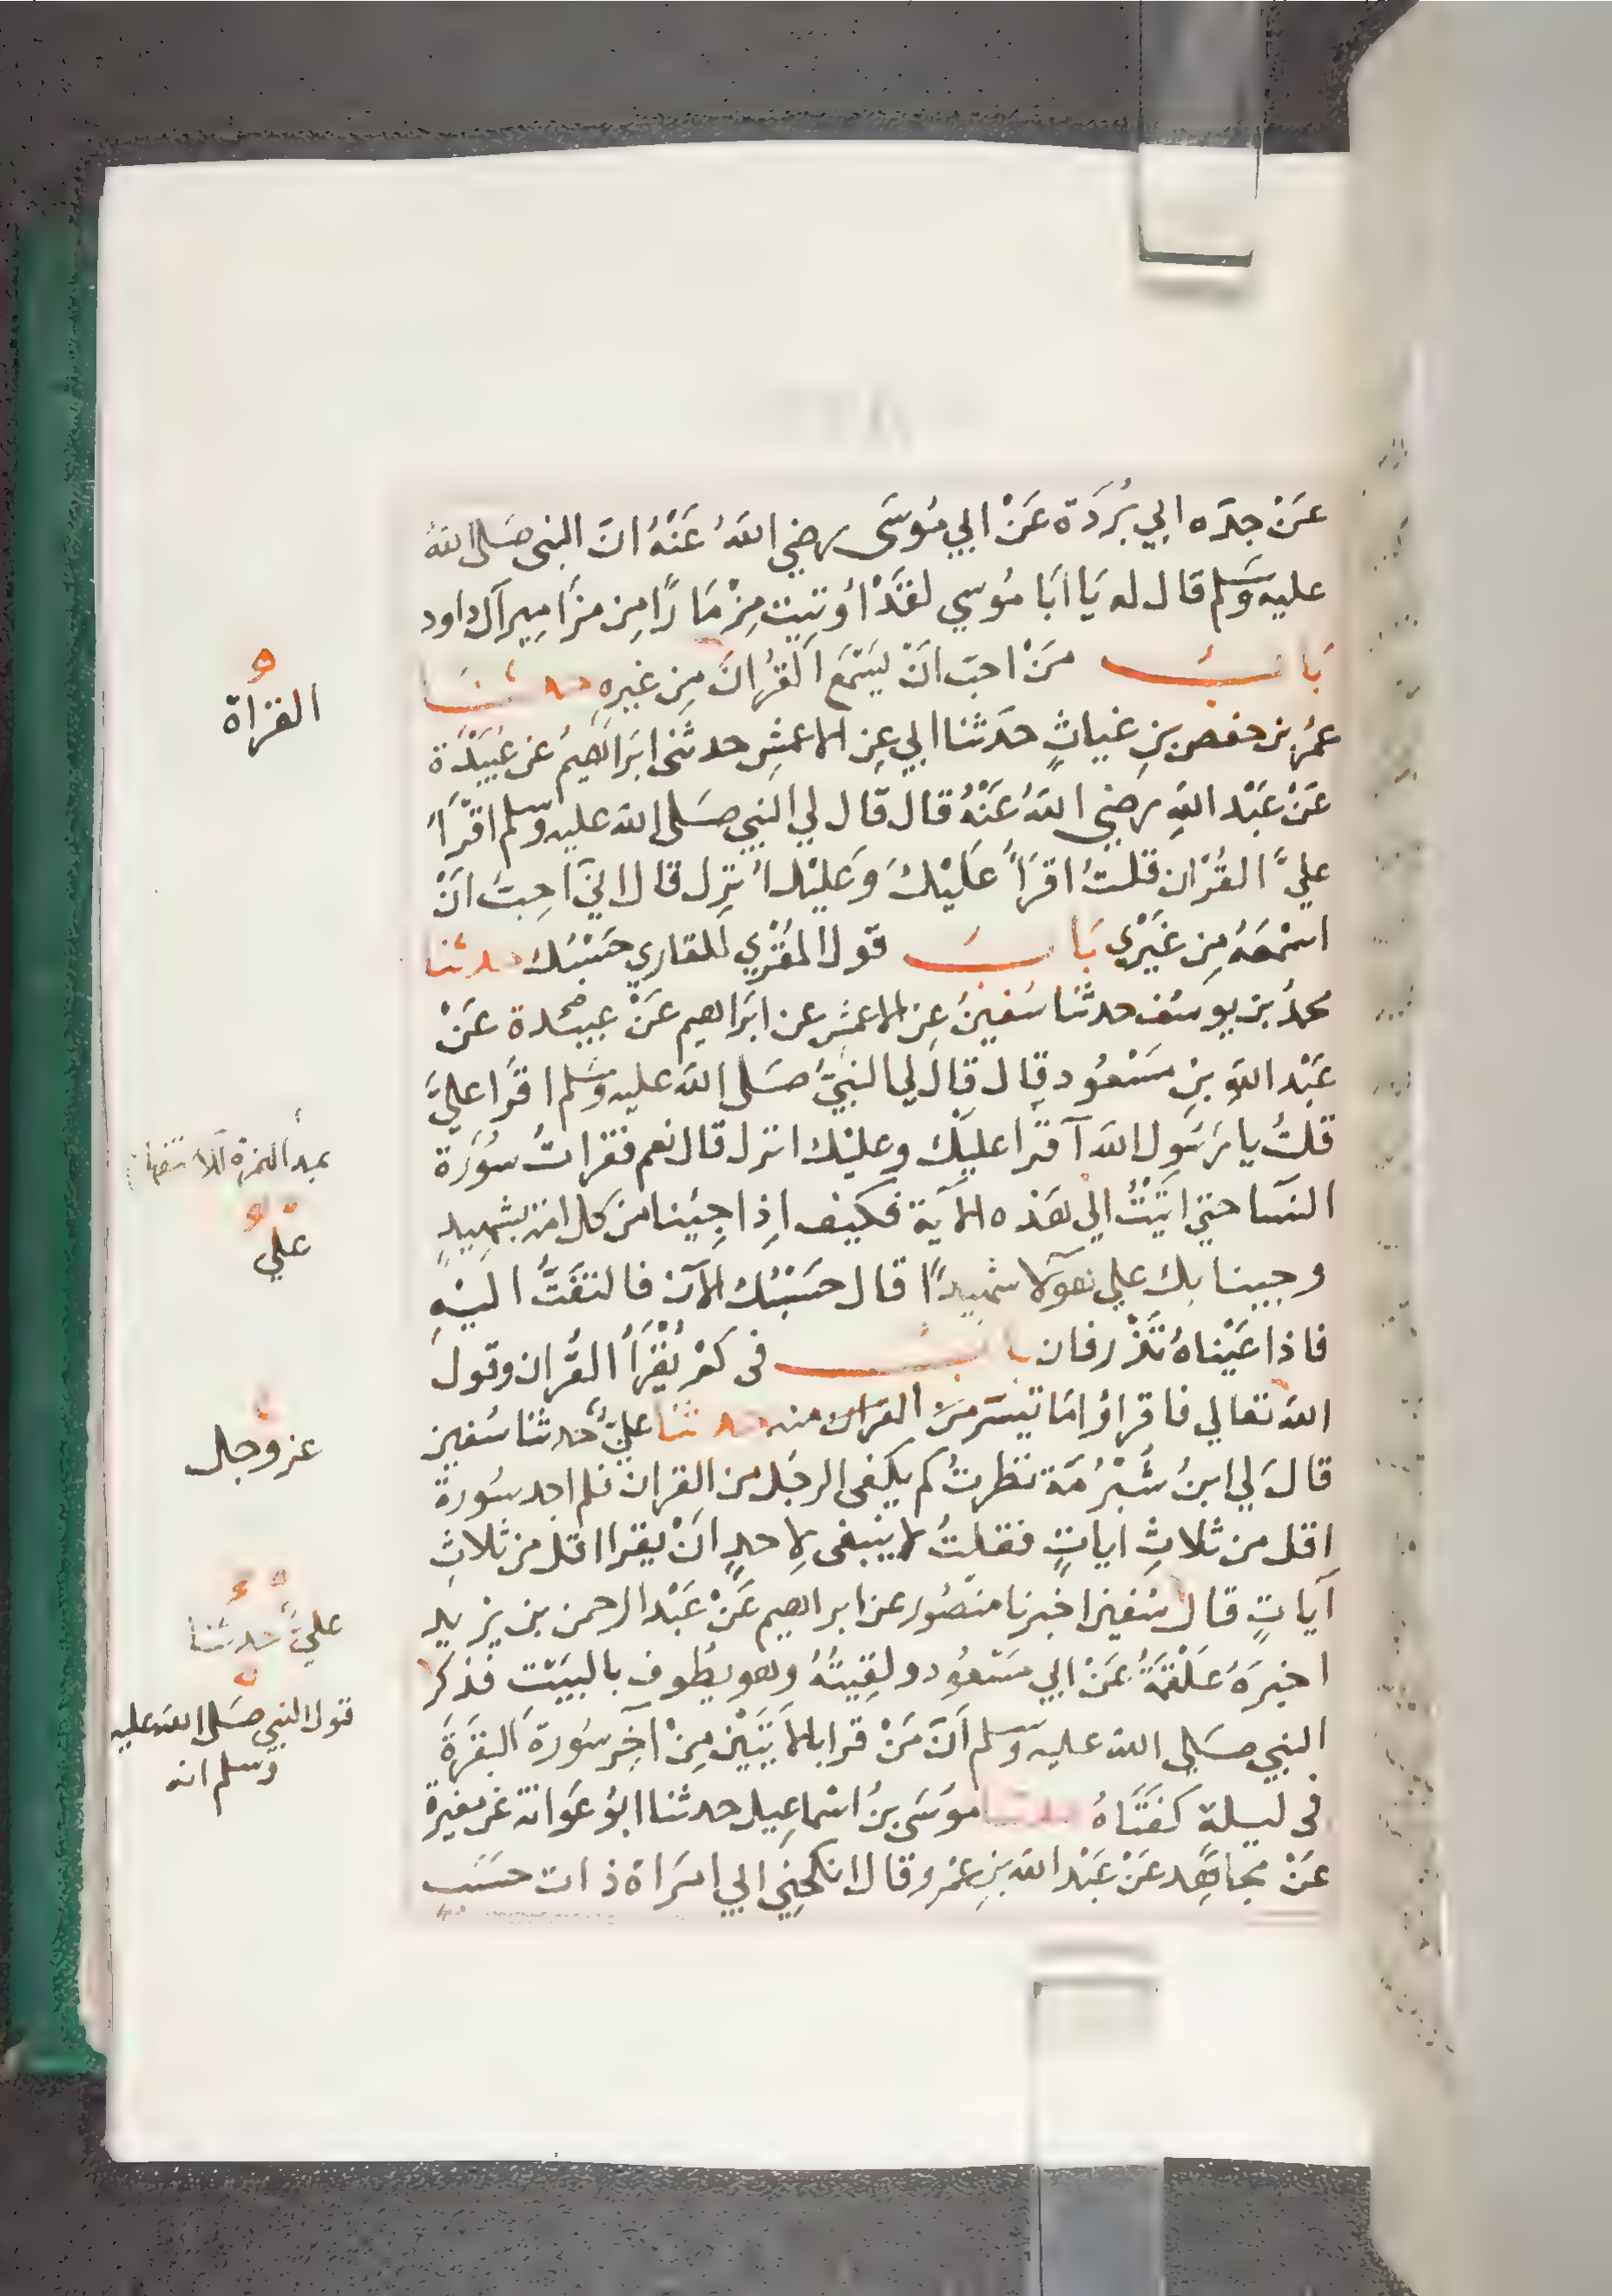 عَنْ جدّه ابي بُرْدَة عَنْ ابي مُوسَى رضي اللهُ عَنْهُ انّ النبي صَلى اللهُ
عليه وَسَلم قال له يَا ابَا مُوسي لقَدْ اُوتِيت مِزْمَارًا مِن مزَامِير آل داود
بَابُ مَنْ احبّ انْ يَسْتَمعَ القُرانَ مِن غيرِهِ حدثنا
عُمرُ بن حفص بنِ غياثٍ حَدثنا ابي عنِ الاعمَشِ حدثنى ابَراهيمُ عن عَبِيْدَة
عَنْ عَبْد اللهِ رضي اللهُ عَنْهُ قال قال لي النبي صَلى الله عليه وسلم اقرَأ
عليَّ القُرْان قلتُ اقرَأُ عَلَيْكَ وَعَلَيْك اُنزِل قال اني احِبّ انْ
اسْمَعَهُ مِن غَيْرِى بَابُ قول المُقْرِي للقاري حَسْبُك حدثنا
محمدُ بن يوسُف حدثنا سُفينُ عنِ الاعمش عن ابَراهيم عَنْ عبيْدة عَنْ
عَبْد اللهِ بنِ مَسْعُود قال قال لي النبيُّ صَلى الله عليه وسلم اقرا عليَّ
قلتُ يا رَسَول الله آ قرا عليْك وعليْك انزل قال نعم فقراتُ سُورَة
النسا حتي اتَيْتُ الي هذه الآية فكيف اِذا جِيْنا من كل امة بشَهِيدٍ
وجينا بك علي هولآ شهيدًا قال حَسْبُك الآن فالتفَتُّ اليْهِ
فاذا عَيْناهُ تَذْرفان بابُ فى كَمْ يُقْرَأُ القُران وقول
الله تعالي فاقراوا مَا تيسّر مِنَ القرانِ منه حدثنا عليٌّ حدثنا سُفين
قالَ لي ابنُ شُبْرُمَة نظرتُ كم يكفى الرجُل من القران فلم اجد سُورةً
اقل من ثلاثِ اياتٍ فقلتُ لا ينبغى لاِحدٍ انْ يقرا اقل من ثلاثِ
آياتٍ قال سُفين اخبرنا منصُور عن ابراهيم عَنْ عَبْد الرحمن بن يزيد
اخبرَهُ عَلْقمَةُ عَنْ ابي مَسْعُود ولقِيتُهُ وهو يطُوف بالبيَت فذكر
النبي صَلي الله عليه وسلم اَنَّ مَنْ قرا بالآيَتَيْن مِنْ آخِر سُورة البقَرَةِ
فى ليلة كفَتَاهُ حدثنا موسَى بنُ اسْماعِيل حدثنا ابُو عَوَانة عَن مغيرة
عَنْ مجاهِد عَنْ عَبْد الله بنِ عَمْرو قال انكحَنِي ابي امرَاة ذات حسَب
القراة
بمد الهمزة للاستفهام
علي
عز وجل
عليّ حدثنا
قول النبي صَلى الله عليه
وسلم انه